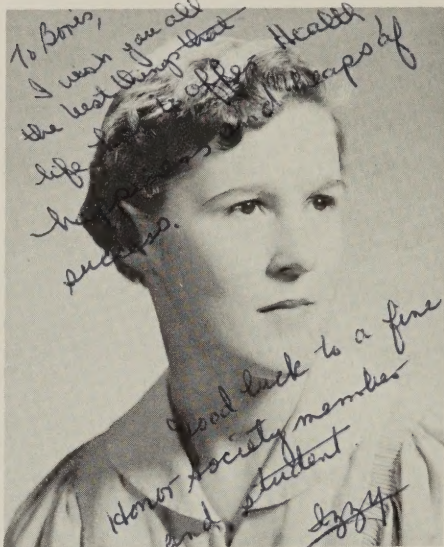 To Boris,
I wish you all
the best things that
life has to offer Health
happiness and heaps of
success.
Good luck to a fine
Honor society member
and student.
Izzy